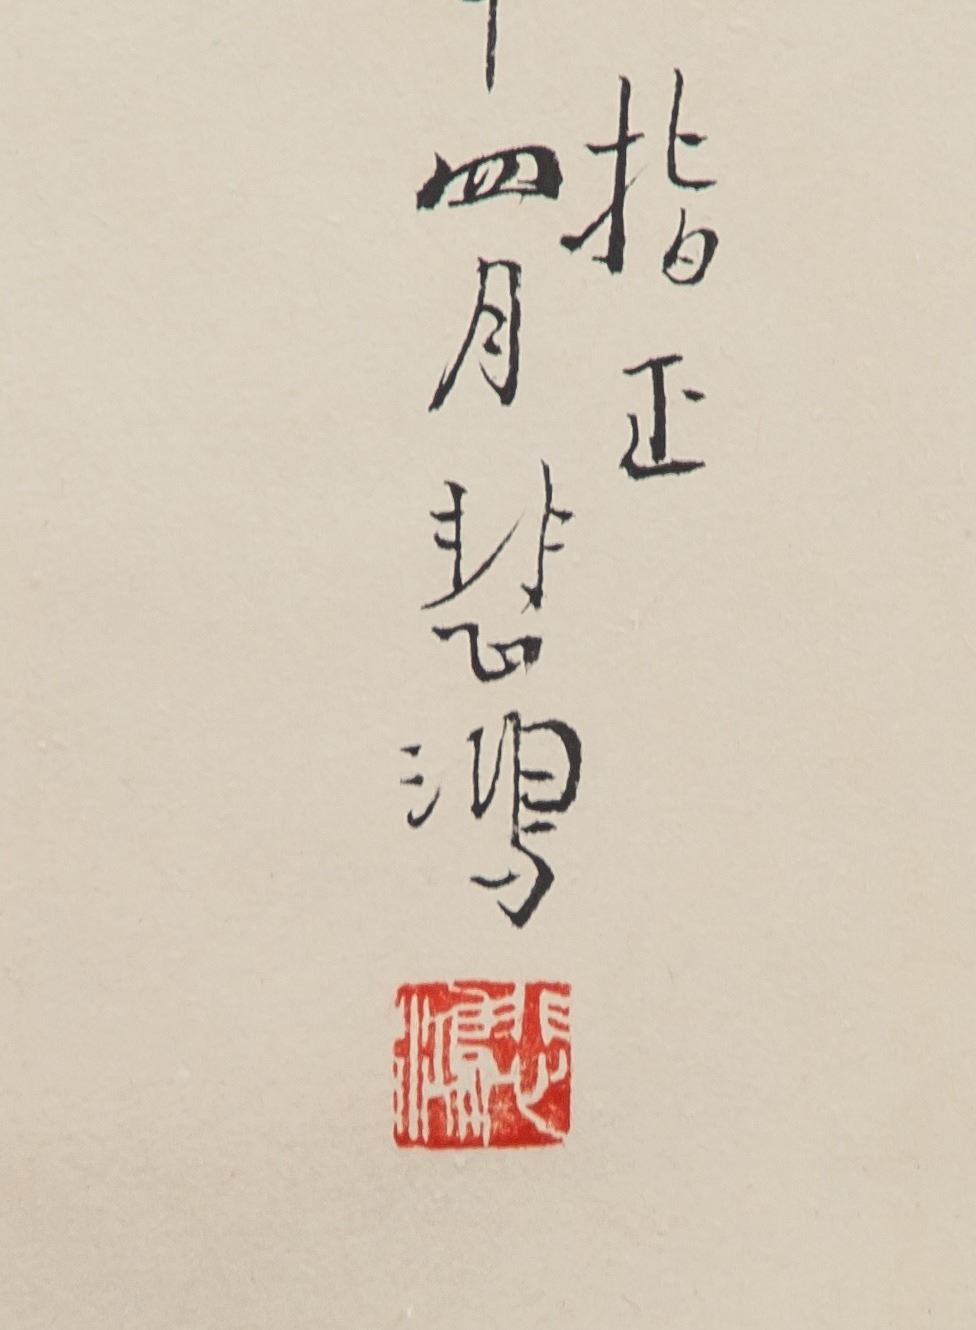 指正
年四月悲鴻
悲鴻